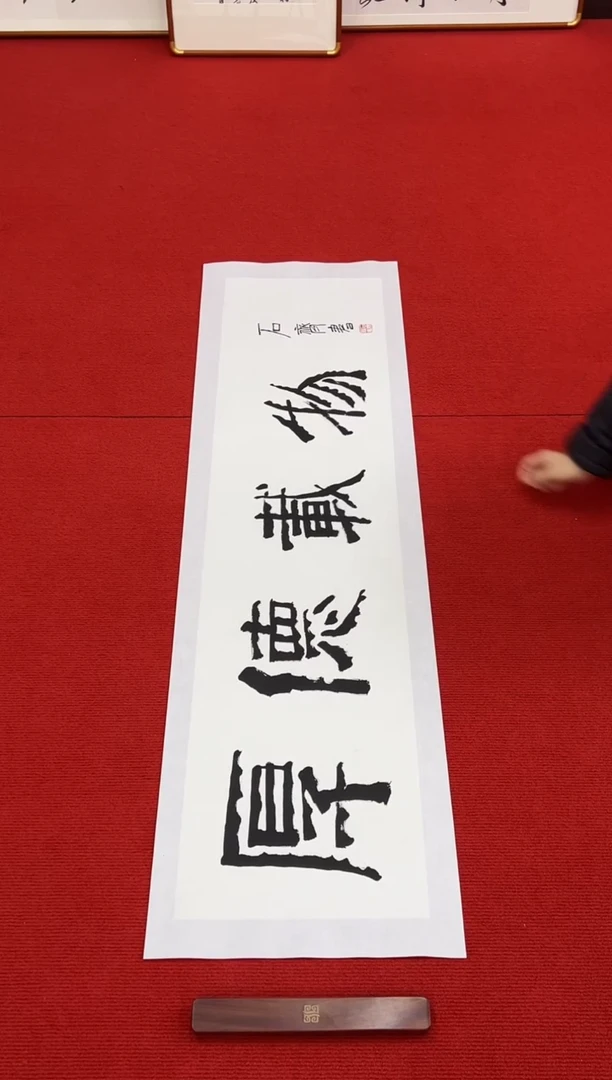 厚德載物
石齋書